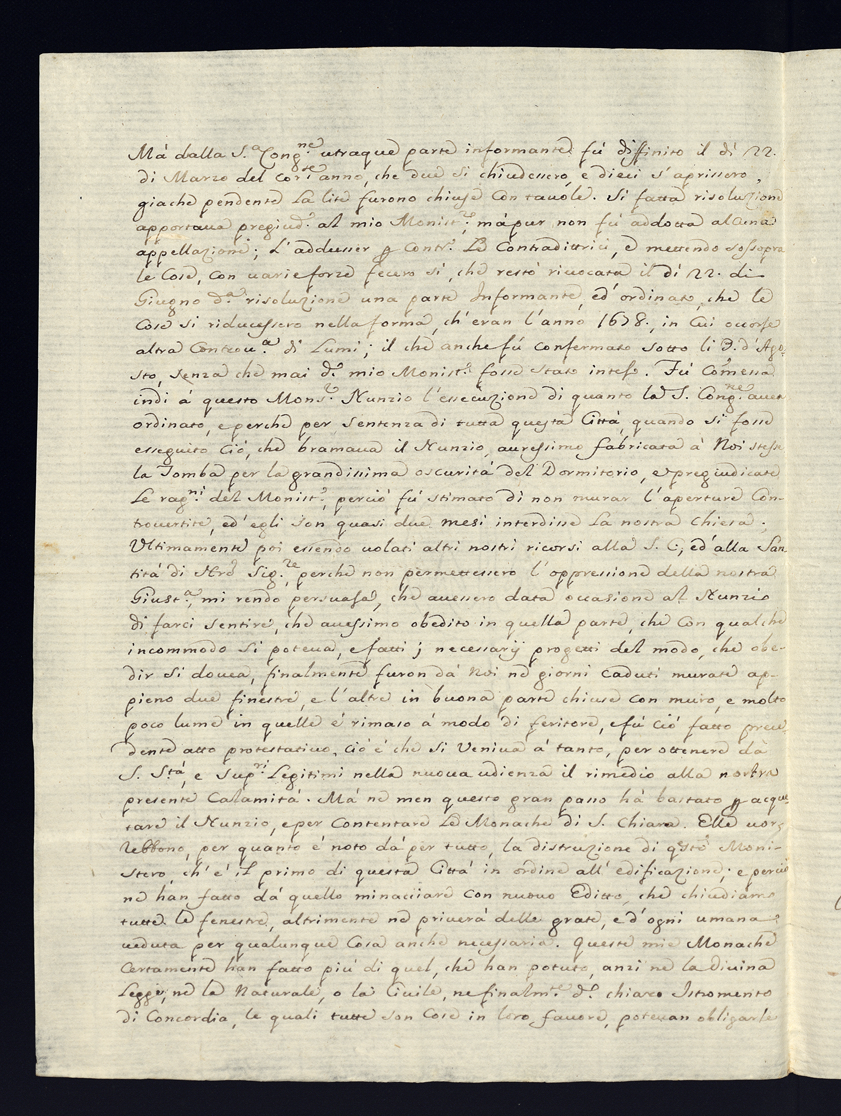 Má dalla S.ª Cong.ne utraque parte informante fú diffinito il dí 22.
di Marzo del cor.te anno, che due si chiudessero, e dieci s'aprissero,
giache pendente la lite furono chiuse con tauole. Si fatta risoluzione
apportaua pregiud.º al mio Monist.º, má pur non fú addotta alcuna
appellazione; L'addusser p Contr.º Le Contradittrici, e mettendo sossopra
le Cose, con uarie forze fecero sí, che restó riuocata il dí 22. di
Giugno d.ª risoluzione una parte Informante, ed' ordinato, che le
Cose si riducessero nella forma, ch'eran l'anno 1678. in cui occorse
altra Controu.ª di Lumi; il che anche fú confermato sotto li 9. d'Ago-
sto, senza che mai d.º mio Monist.º fosse stato inteso. Fú Comessa
indi á questo Mons.r Nunzio l'essecuzione di quanto la S. Cong.ne auea
ordinato, e perche per sentenza di tutta questa Cittá, quando si fosse
esseguito ció, che bramaua il Nunzio, auressimo fabricata á Noi stesse
la Tomba per la grandissima oscuritá del Dormitorio, e pregiudicate
Le rag.ni del Monist.º, perció fú stimato di non murar l'aperture Con-
trouertite, ed' egli son quasi due mesi interdisse la nostra Chiesa.
Ultimamente poi essendo uolati altri nostri ricorsi alla S. C., ed' alla San-
titá di Nrõ Sig.re, perche non permettessero l'oppressione della nostra
Giust.ª, mi rendo persuasa, che auessero data occasione al Nunzio
di farci sentire, che auessimo obedito in quella parte, che con qualche
incommodo si poteua, e fatti j necessarij progetti del modo, che obe-
dir si doueua, finalmente furon dá Noi ne giorni caduti murate ap-
pieno due finestre, e l'altre in buona parte chiuse con muro, e molto
poco lume in quelle é rimaso á modo di feritore, e fú ció fatto prece-
dente atto protestatiuo, ció é che si Veniua á tanto, per ottenere dá
S. Stá, e Sup.ri Legitimi nella nuoua udienza il rimedio alla nostra
presente Calamitá. Má ne men questo gran passo há bastato p acque-
tare il Nunzio, e per Contentare Le Monache di S. Chiara. Elle uor-
rebbono, per quanto é noto dá per tutto, la distruzione di qsto Moni-
stero, ch'é il primo di questa Cittá in ordine all'edificazione; e perció
ne han fatto dá quello minacciare con nuouo Editto, che chiudiamo
tutte le finestre, altrimente ne priuerá delle grate, e d'ogni umana
ueduta per qualunque Cosa anche necessaria. Queste mie Monache
Certamente han fatto piú di quel, che han potuto, anzi ne la diuina
Legge, ne la Naturale, o la Ciuile, ne finalm.te d.º chiaro Istromento
di Concordia, le quali tutte son Cose in loro fauore, poteuan obligarle